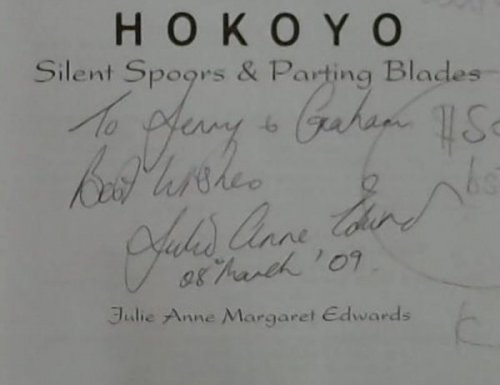 HOKOYO
Silent Spoors & Parting Blades
To Jenny & Graham
Best Wishes
Julie Anne Edwards
08 March '09.
Julie Anne Margaret Edwards